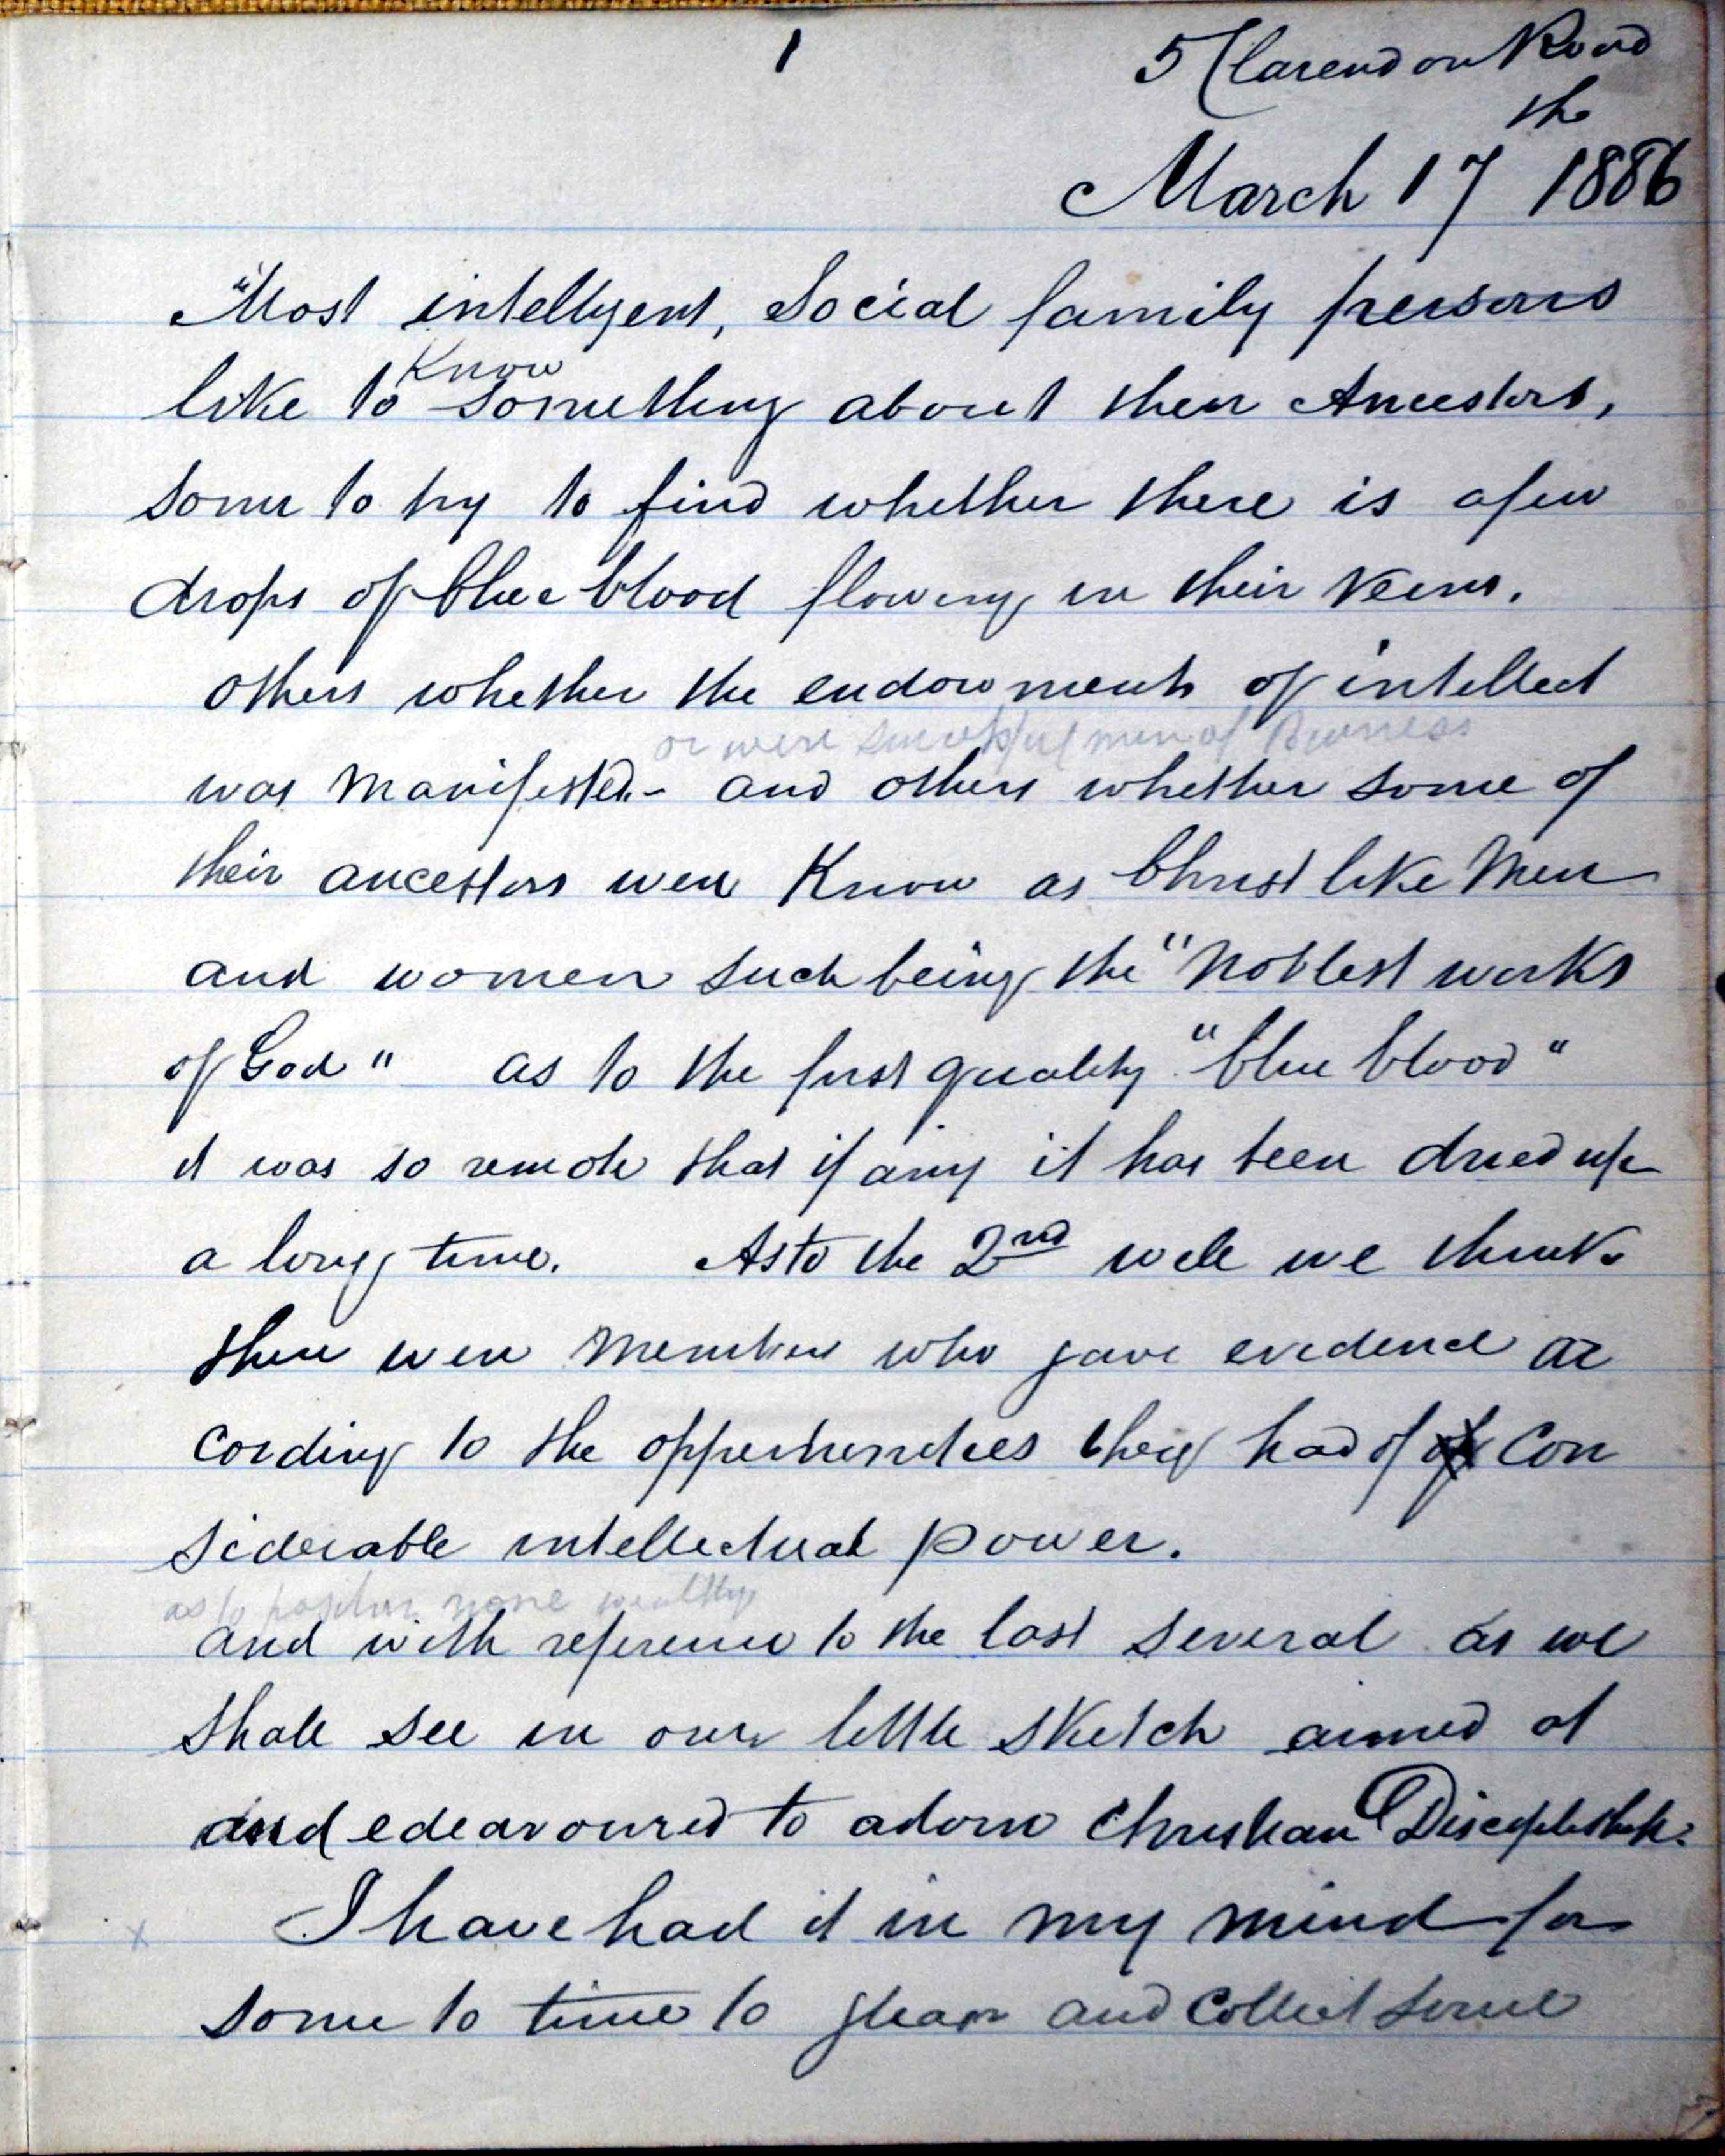 1
5 Clarendon Road
th
March 17 1886
"Most intelligent, Social family persons
Know
like to something about their Ancestors,
some to try to find whether there is a few
drops of blue blood flowing in their veins.
others whether the endowments of intellect
or were successful men of Business
was manifested - and others whether some of
their ancestors were Know as Christ like Men
and women such being the "Noblest works
of God" as to the first quality "blue blood"
it was so remote that if any it has been dried up
a long time. As to the 2nd well we think
there were Members who gave evidence ac
cording to the oppertunities they had of of Con
siderable intellectual power.
as to position none wealthy
and with reference to the last several as we
shall see in our little sketch aimed at
and edeavoured to adorn Christian Discipleship.
x I have had it in my mind for
some to time to glean and Collect some